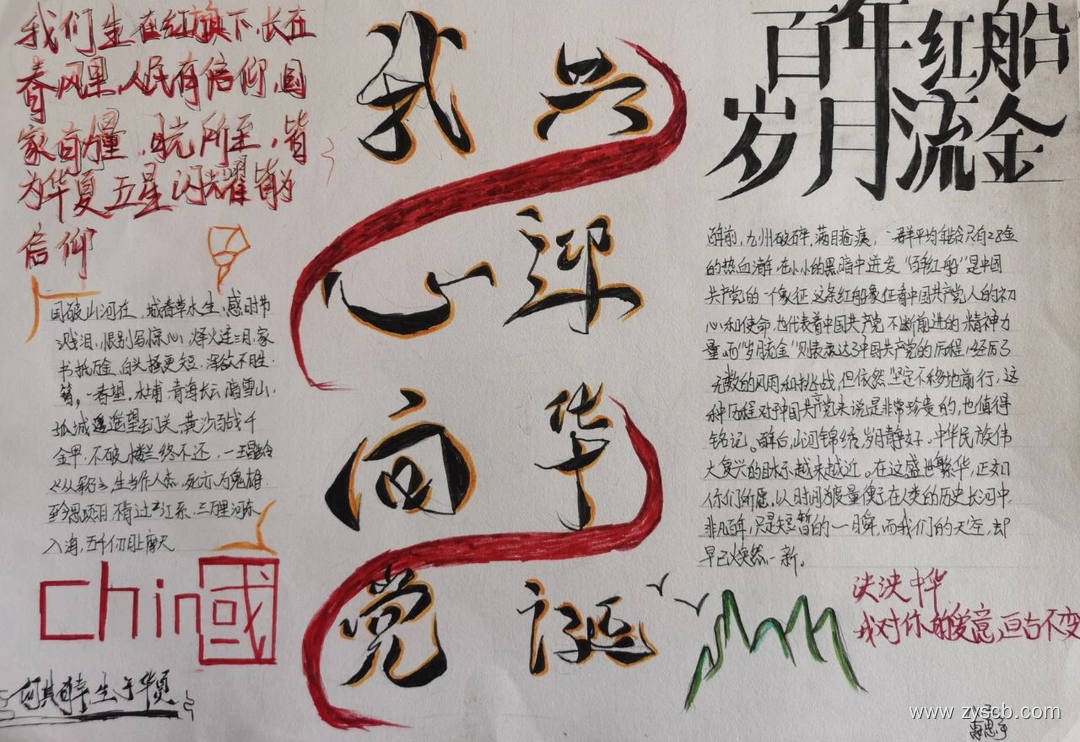 我们生在红旗下,长在
春风里,人民有信仰,国
家有力量,目光所至,皆
为华夏,五星闪耀皆为
信仰
国破山河在,城春草木生,感时节
溅泪,恨别鸟惊心,烽火连三月,家
书抵万金,白头搔更短,浑欲不胜
簪,-春望,杜甫,青海长云暗雪山,
孤城遥望玉门关,黄沙百战穿
金甲,不破楼兰终不还,一王昌龄
《从军行》,生当作人杰,死亦为鬼雄,
至今思项羽,不肯过江东,三万里河东
入海,五千仞岳上摩天
chin國
何其有幸生于华夏
我心向党
兴评华诞
百年红船
岁月流金
醉前,九州破碎,满目疮痍,一群平均年龄只有28金
的热血青年,在小小的黑暗中迸发"百年红船"是中国
共产党的一个象征,这条红船象征着中国共产党人的初
心和使命,也代表着中国共产党不断前进的精神力
量,而"岁月流金"则表达了中国共产党的历程,经历了
无数的风雨和挑战,但依然坚定不移地前行,这
种历程对于中国共产党来说是非常珍贵的,也值得
铭记。醉后,山河锦绣,岁月静好,中华民族伟
大复兴的目标越来越近。在这盛世繁华,正如
你们所愿,以时间为度量像于在人类的历史长河中,
非凡百年,只是短暂的一瞬,而我们的天空,却
早已焕然一新。
泱泱中华
我对你的爱意,亘古不变
www.zyscb.com